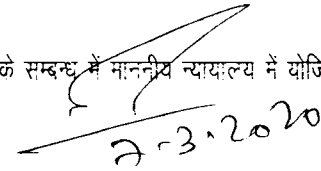 के सम्बन्ध में माननीय न्यायाल्य में योजि
7-3-2020